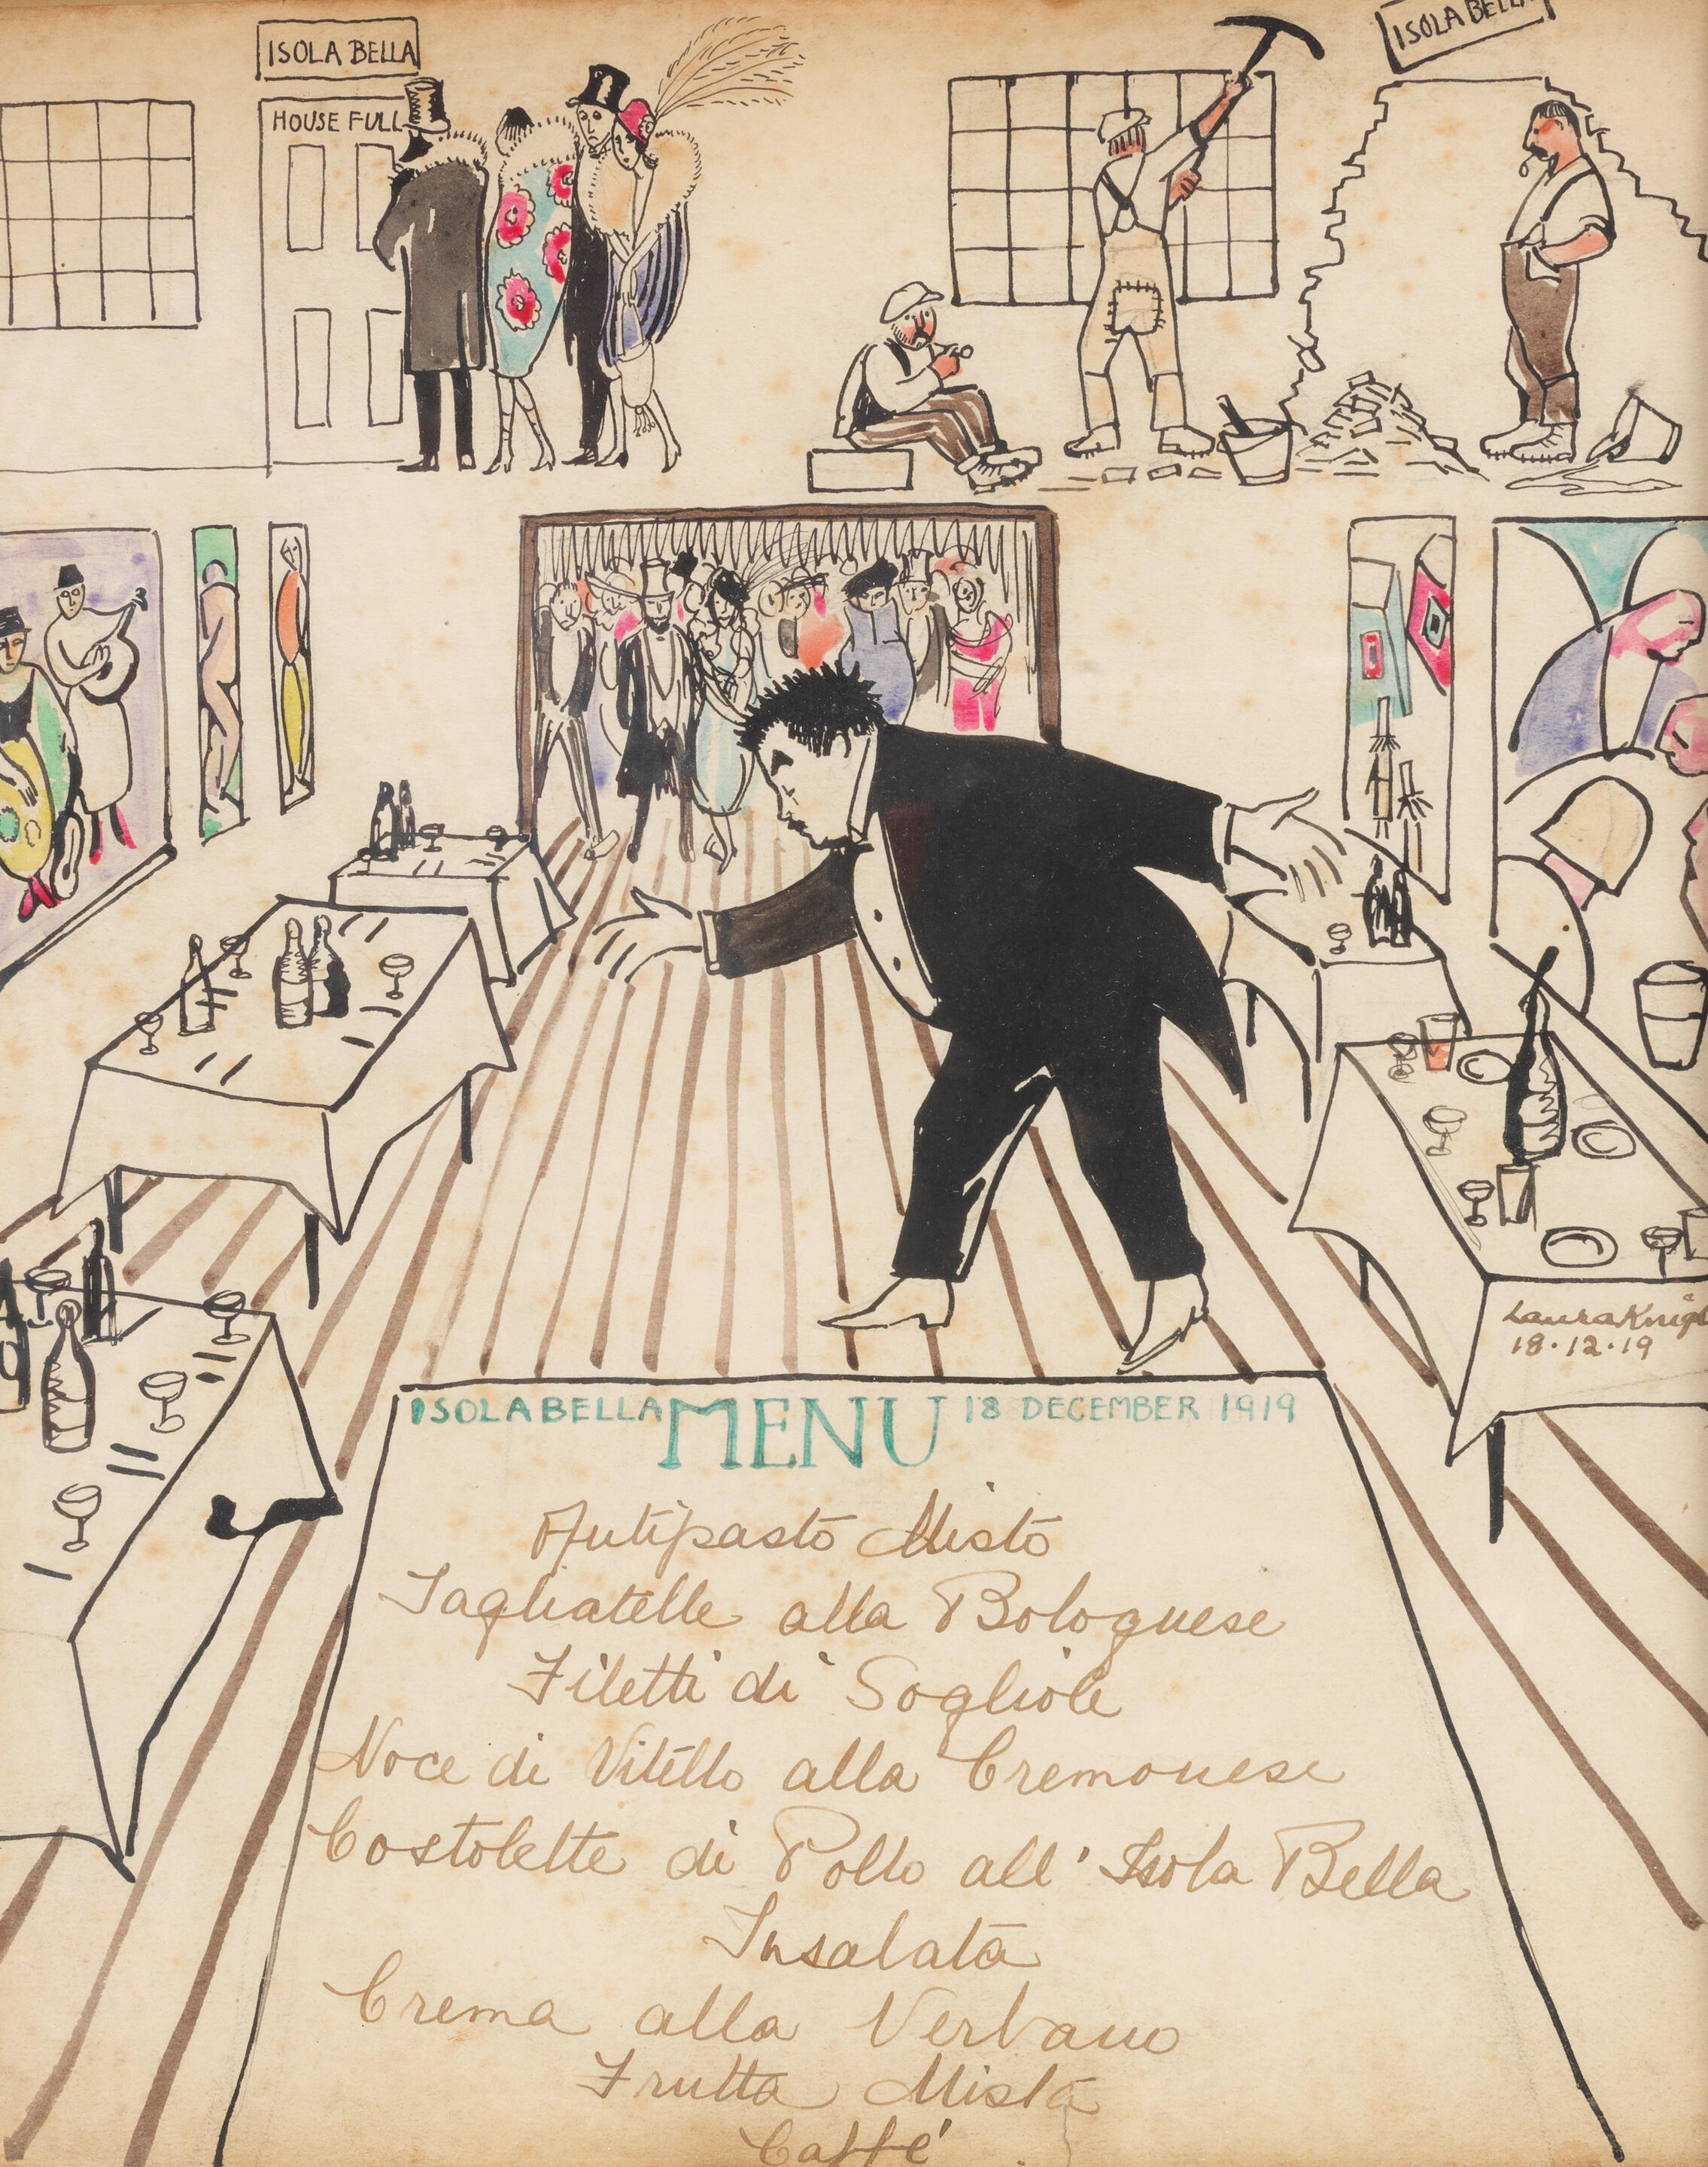 ISOLA BELLA
ISOLA BELLA
HOUSE FULL
Laura Knigh
18·12·19
ISOLA BELLA MENU 18 DECEMBER 1919
Antipasto Misto
Tagliatelle alla Bolognese
Filetti di Sogliole
Noce di Vitello alla Cremonese
Costolette di Pollo all' Isola Bella
Insalata
Crema alla Verbano
Frutta Mista
Caffe'